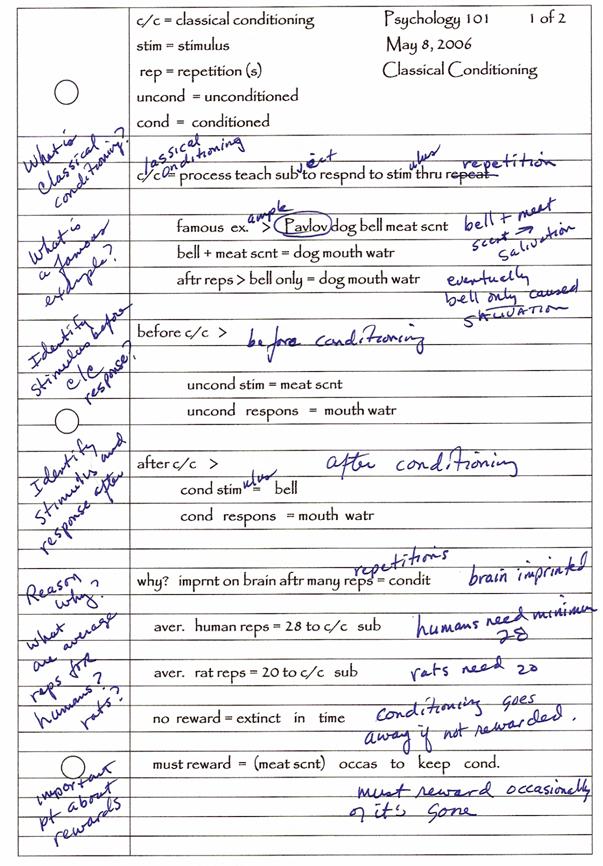 c/c = classical conditioning Psychology 101 1 of 2
stim = stimulus May 8, 2006
rep = repetition (s) Classical Conditioning
uncond = unconditioned
cond = conditioned
What is
classical
conditioning?
lassical
onditioning
ject
ulus
repetition
c/c = process teach sub to respnd to stim thru repeat
What is
a famous
example?
ample
famous ex. > Pavlov dog bell meat scnt
bell + meat
scent →
salivation
bell + meat scnt = dog mouth watr
aftr reps > bell only = dog mouth watr
eventually
bell only caused
SALIVATION
Identify
stimulus before
c/c
response?
before c/c > before conditioning
uncond stim = meat scnt
uncond respons = mouth watr
Identify
stimulus and
response after
after c/c > after conditioning
ulus
cond stim = bell
cond respons = mouth watr
Reason
why?
repetitions
why? imprnt on brain aftr many reps = condit brain imprinted
What
are average
reps for
humans?
rats?
aver. human reps = 28 to c/c sub humans need minimum
28
aver. rat reps = 20 to c/c sub rats need 20
no reward = extinct in time conditioning goes
away if not rewarded.
important
pt about
rewards
must reward = (meat scnt) occas to keep cond.
must reward occasionally
or it's gone